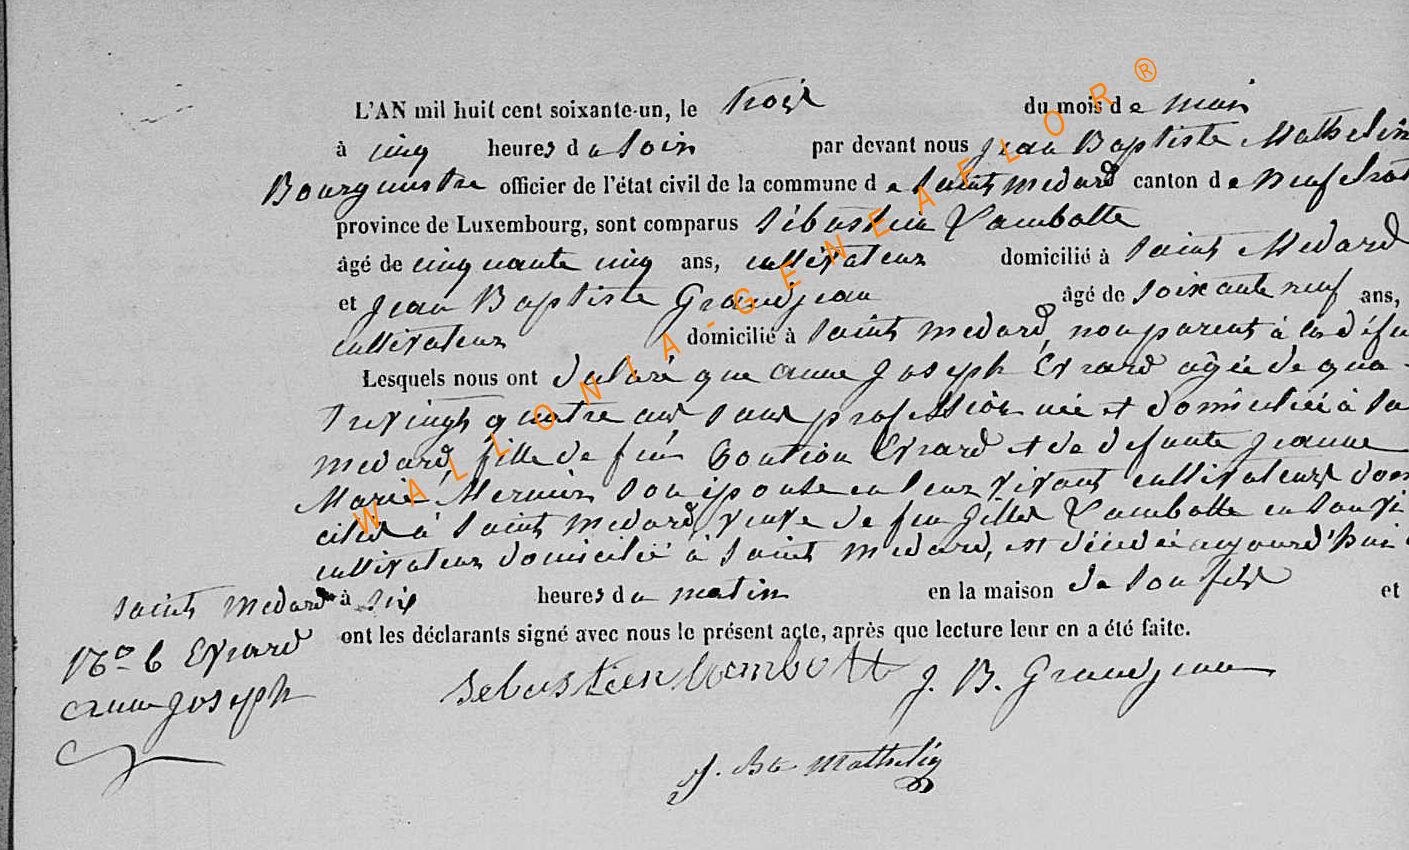 L'AN mil huit cent soixante-un, le trois du mois de mai
à cinq heures du soir par devant nous Jean Baptiste Mathelin
Bourgmestre officier de l'état civil de la commune de Saint Medard canton de Neufchât
province de Luxembourg, sont comparus Sébastien Lambotte
âgé de cinquante cinq ans, cultivateur domicilié à Saint Medard
et Jean Baptiste Grandjean âgé de soixante neuf ans,
cultivateur domicilié à Saint Medard, non parent à la défu
Lesquels nous ont déclaré que Anne Joseph Evrard agée de qua-
trevingt quatre ans sans profession née et domiciliée à Sa
Medard, fille de feu Evrard et de defunte Jeanne
Marie son épouse en leur vivant cultivateurs dom
ciliés à Saint Medard, veuve de feu Gilles Lambotte en son vi
cultivateur domicilié à Saint Medard, est décédée aujourd'hui
à six heures du matin en la maison de son fils et
ont les déclarants signé avec nous le présent acte, après que lecture leur en a été faite.
Saint Medard
No 6 Evrard
Anne Joseph
Sebastien Lambott J. B. Grandjean
J. Bte Mathelin
WALLONIA-GENEAFLOR®